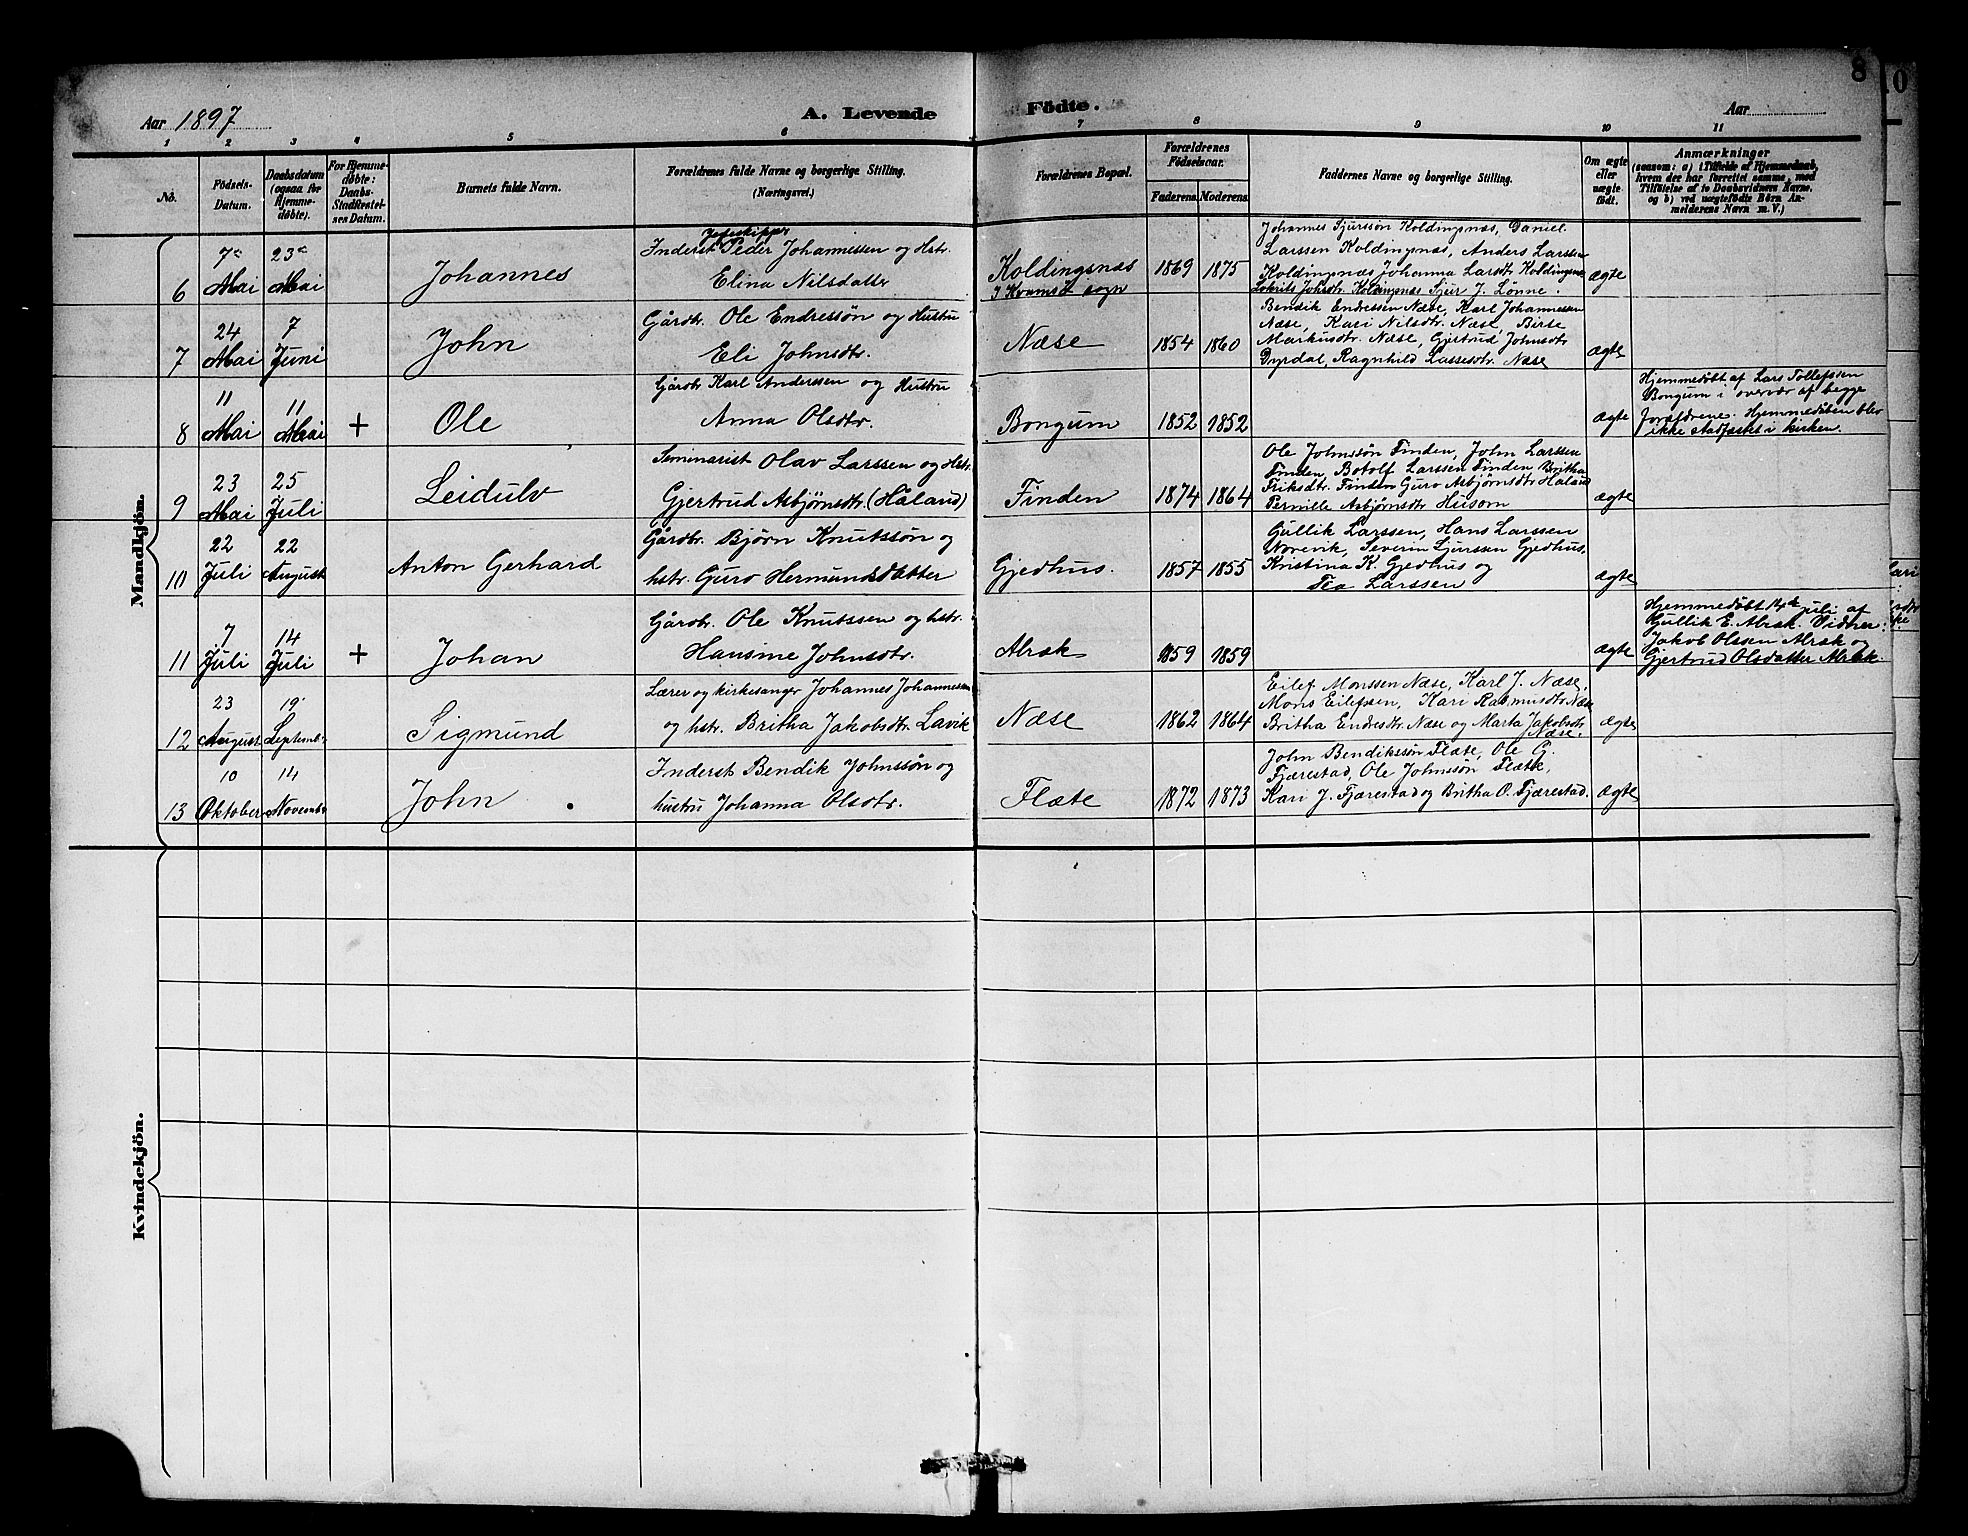 8
0
Aar 1897
A. Levende
Födte.
Aar
1 2 3 4 5 6 7 8 9 10 11
No.
Födsels-
Datum.
Daabsdatum
(ogsaa for
Hjemme-
döbte).
For Hjemme-
döbte:
Daabs-
Stadfæstel-
ses Datum.
Barnets fulde Navn.
Forældrenes fulde Navne og borgerlige Stilling.
(Næringsvei.)
Forældrenes Bopæl.
Forældrenes
Födselsaar.
Faderens.
Moderens.
Faddernes Navne og borgerlige Stilling.
Om ægte
eller
uægte
födt.
Anmærkninger
(saasom: a) i Tilfælde af Hjemmedaab,
hvem der har forrettet samme, med
Tilföielse af to Daabsvidners Navne,
og b) ved uægtefödte Börn An-
melderens Navn m. V.)
Mandkjön.
6
7de
Mai
23de
Mai
Johannes
Inderst Peder Johannessen og Hstr.
Elina Nilsdatter
Koldingsnæs
I Kvamsø sogn
1869
1875
Johannes Sjurssøn Koldingsnæs, Daniel
Larssen Koldingsnæs, Anders Larssen
Koldingsnæs Johanna Larsdtr. Koldingsnæs
Johsdtr. Koldingsnæs Sjur J. Lønne.
ægte
7
24
Mai
7
Juni
John
Gårdbr. Ole Endressøn og Hustru
Eli Johnsdtr.
Næse
1854
1860
Bendik Endressen Næse, Karl Johannessen
Næse, Kari Nilsdtr. Næse, Birte
Markusdtr. Næse, Gjertrud Johnsdtr
Dyrdal, Ragnhild Lassesdtr. Næse
ægte
8
11
Mai
11
Mai
+
Ole
Gårdbr Karl Anderssen og Hustru
Anna Olsdtr.
Bongum
1852
1852
ægte
Hjemmedøbt af Lars Tollefssen
Bongum i overvær af begge
forældrene. Hjemmedåben blev
ikke stadfæstet i kirken.
9
23
Mai
25
Juli
Leidulv
Seminarist Olav Larssen og Hstr.
Gjertrud Asbjørnsdtr. (Håland)
Finden
1874
1864
Ole Johnssøn Finden, John Larssen
Finden, Botolf Larssen Finden, Britha
Eriksdtr. Finden Guro Asbjørnsdtr Håland
Pernille Asbjørnsdtr Husom
ægte
10
22
Juli
22
August
Anton Gerhard
Gårdbr. Bjørn Knutssøn og
hstr. Guro Hermundsdatter
Gjedhus.
1857
1855
Gullik Larssen, Hans Larssen
Norevik, Severin Sjurssen Gjedhus,
Kristina K. Gjedhus og
Tea Larssen
ægte
11
7
Juli
14
Juli
+
Johan
Gårdbr. Ole Knutssen og hstr.
Hansine Johnsdtr.
Alræk
1859
1859
ægte
Hjemmedøbt 14de juli af
Gullik E. Alræk. Vidner:
Jakob Olssen Alræk og
Gjertrud Olsdatter Alræk.
12
23
August
19
Septembr.
Sigmund
Lærer og kirkesanger Johannes Johannessen
og hstr. Britha Jakobsdtr. Lavik
Næse
1862
1864
Eilef Monssen Næse, Karl J. Næse,
Mons Eilefsen, Kari Rasmusdtr. Næse
Britha Endresdtr. Næse og Marta Jakobsdtr.
Næse.
ægte
13
10
Oktober
14
Novembr
John
Inderst Bendik Johnssøn og
hustru Johanna Olsdtr.
Flæte
1872
1873
John Bendikssøn Flæte, Ole G.
Fjærestad, Ole Johnssøn Flæte,
Kari J. Fjærestad og Britha O. Fjærestad.
ægte
Kvindekjön.